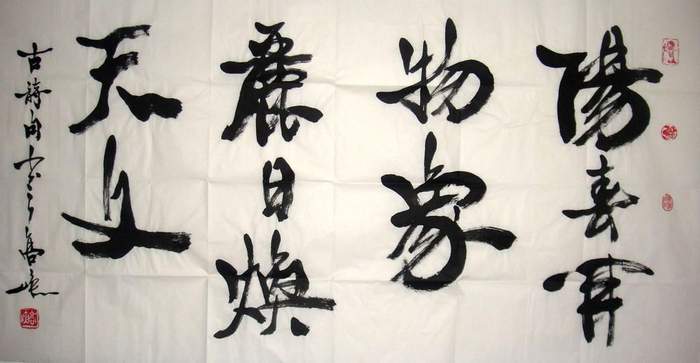 陽春開
物象
麗日煥
天文
古詩句